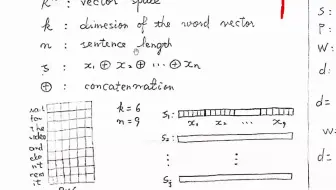 : vector space
k : dimesion of the word vector
n : sentence length
ξ : x₁ ⊕ x₂ ⊕ ... ⊕ xₙ
⊕ : concatenation
wait
for
the
video
and
do
n't
rent
it
k = 6
n = 9
S₁:
x₁ x₂ ... x₉
S₂:
S₃
S:
P:
W:
d:
d=
w=
d=